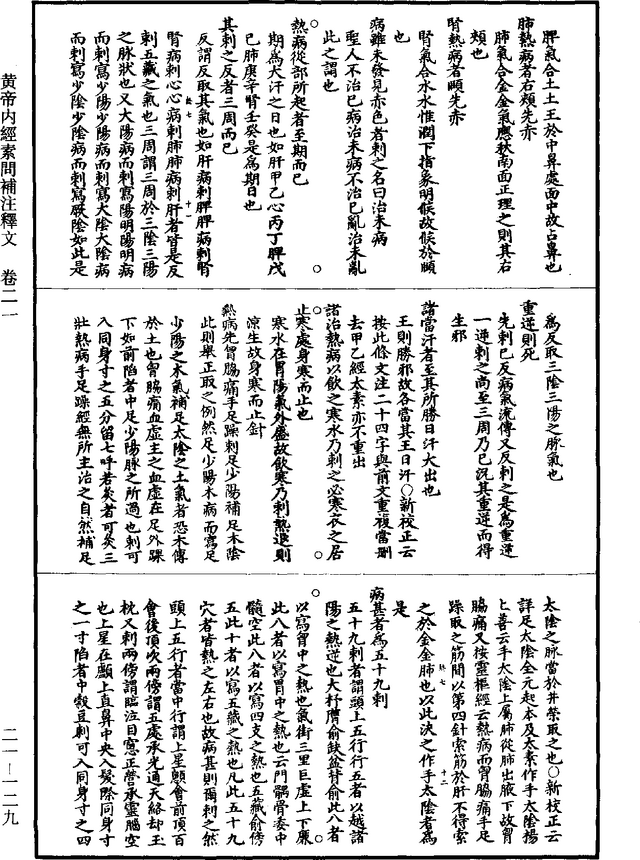 脾氣合土土王於中鼻處面中故占鼻也
肺熱病者右頰先赤
肺氣合金金氣應秋南面正理之則其右
頰也
腎熱病者頤先赤
腎氣合水水惟潤下指象明候故候於頤
也
病雖未發見赤色者刺之名曰治未病
聖人不治已病治未病不治已亂治未亂
此之謂也
熱病從部所起者至期而已
期為大汗之日也如肝甲乙心丙丁脾戊
己肺庚辛腎壬癸是為期日也
其刺之反者三周而已
反謂反取其氣也如肝病刺脾脾病刺腎
腎病刺心心病刺肺肺病刺肝者皆是反
刺五藏之氣也三周謂三周於三陰三陽
之脉狀也又太陽病而刺寫陽明陽明病
而刺寫少陽少陽病而刺寫太陰太陰病
而刺寫少陰少陰病而刺寫厥陰如此是
為反取三陰三陽之脉氣也
重逆則死
先刺已反病氣流傳又反刺之是為重逆
一逆刺之尚至三周乃已況其重逆而得
生邪
諸當汗者至其所勝日汗大出也
王則勝邪故各當其王日汗○新校正云
按此條文注二十四字與前文重複當刪
去甲乙經太素亦不重出
諸治熱病以飲之寒水乃刺之必寒衣之居
止寒處身寒而止也
寒水在胃陽氣外盛故飲寒乃刺熱退則
涼生故身寒而止針
熱病先胷脇痛手足躁刺足少陽補足太陰
此則舉正取之例然足少陽木病而寫足
少陽之木氣補足太陰之土氣者恐木傳
於土也胷脇痛丘虛主之丘虛在足外踝
下如前陷者中足少陽脉之所過也刺可
入同身寸之五分留七呼若灸者可灸三
壯熱病手足躁經無所主治之自然補足
太陰之脉當於井榮取之也○新校正云
詳足太陰全元起本及太素作手太陰楊
上善云手太陰上屬肺從肺出腋下故胷
脇痛又按靈樞經云熱病而胷脇痛手足
躁取之筋間以第四針索筋於肝不得索
之於金金肺也以此決之作手太陰者為
是
病甚者為五十九刺
五十九刺者謂頭上五行行五者以越諸
陽之熱逆也大杼膺俞缺盆背俞此八者
以寫胷中之熱也氣街三里巨虛上下廉
此八者以寫胃中之熱也雲門髃骨委中
髓空此八者以寫四支之熱也五藏俞傍
五此十者以寫五藏之熱也凡此五十九
穴者皆熱之左右也故病甚則爾刺之然
頭上五行者當中行謂上星顖會前頂百
會後頂次兩傍謂五處承光通天絡却玉
枕又刺兩傍謂臨泣目窻正營承靈腦空
也上星在顱上直鼻中央入髮際同身寸
之一寸陷者中容豆刺可入同身寸之四
黄帝内經素問補注釋文 卷二一
二一—一二九